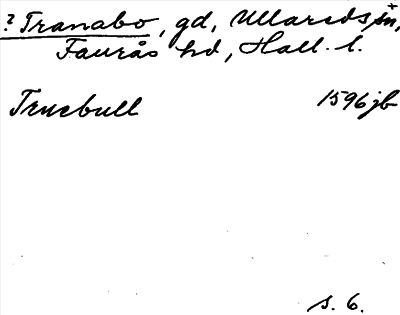 ? Tranabo, gd, Ullareds sn,*
Faurås hd, Hall. l.
Truebull 1596 jb
s. 6.